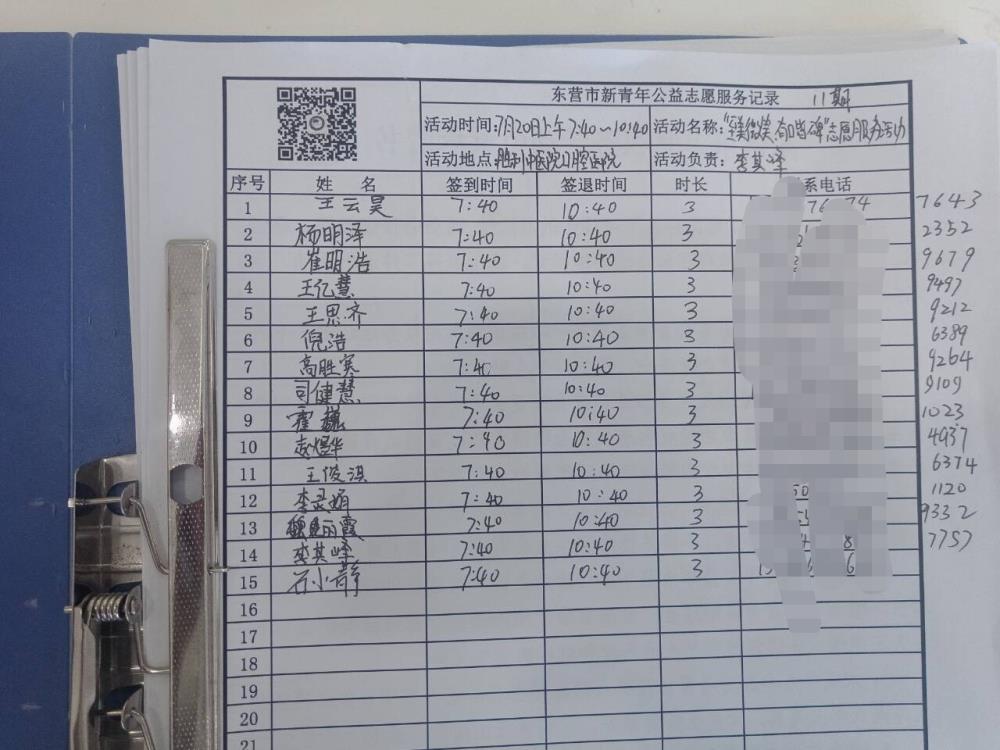 东营市新青年公益志愿服务记录 11期
活动时间:7月20日上午7:40~10:40 活动名称: 有口皆碑"志愿服务活动
活动地点:胜利 医院口腔医院 活动负责:李其峰
序号 姓 名 签到时间 签退时间 时长 系电话
1 王云昊 7:40 10:40 3 7643
2 杨明泽 7:40 10:40 3 2352
3 崔明浩 7:40 10:40 3 9679
4 王亿慧 7:40 10:40 3 9497
5 王思齐 7:40 10:40 3 9212
6 倪浩 7:40 10:40 3 6389
7 高胜寒 7:40 10:40 3 9264
8 司健慧 7:40 10:40 3 9109
9 霍巍 7:40 10:40 3 1023
10 赵煜华 7:40 10:40 3 4937
11 王俊淇 7:40 10:40 3 6374
12 李 娟 7:40 10:40 3 1120
13 魏 霞 7:40 10:40 3 9332
14 李其峰 7:40 10:40 3 7757
15 石小静 7:40 10:40 3
16
17
18
19
20
21